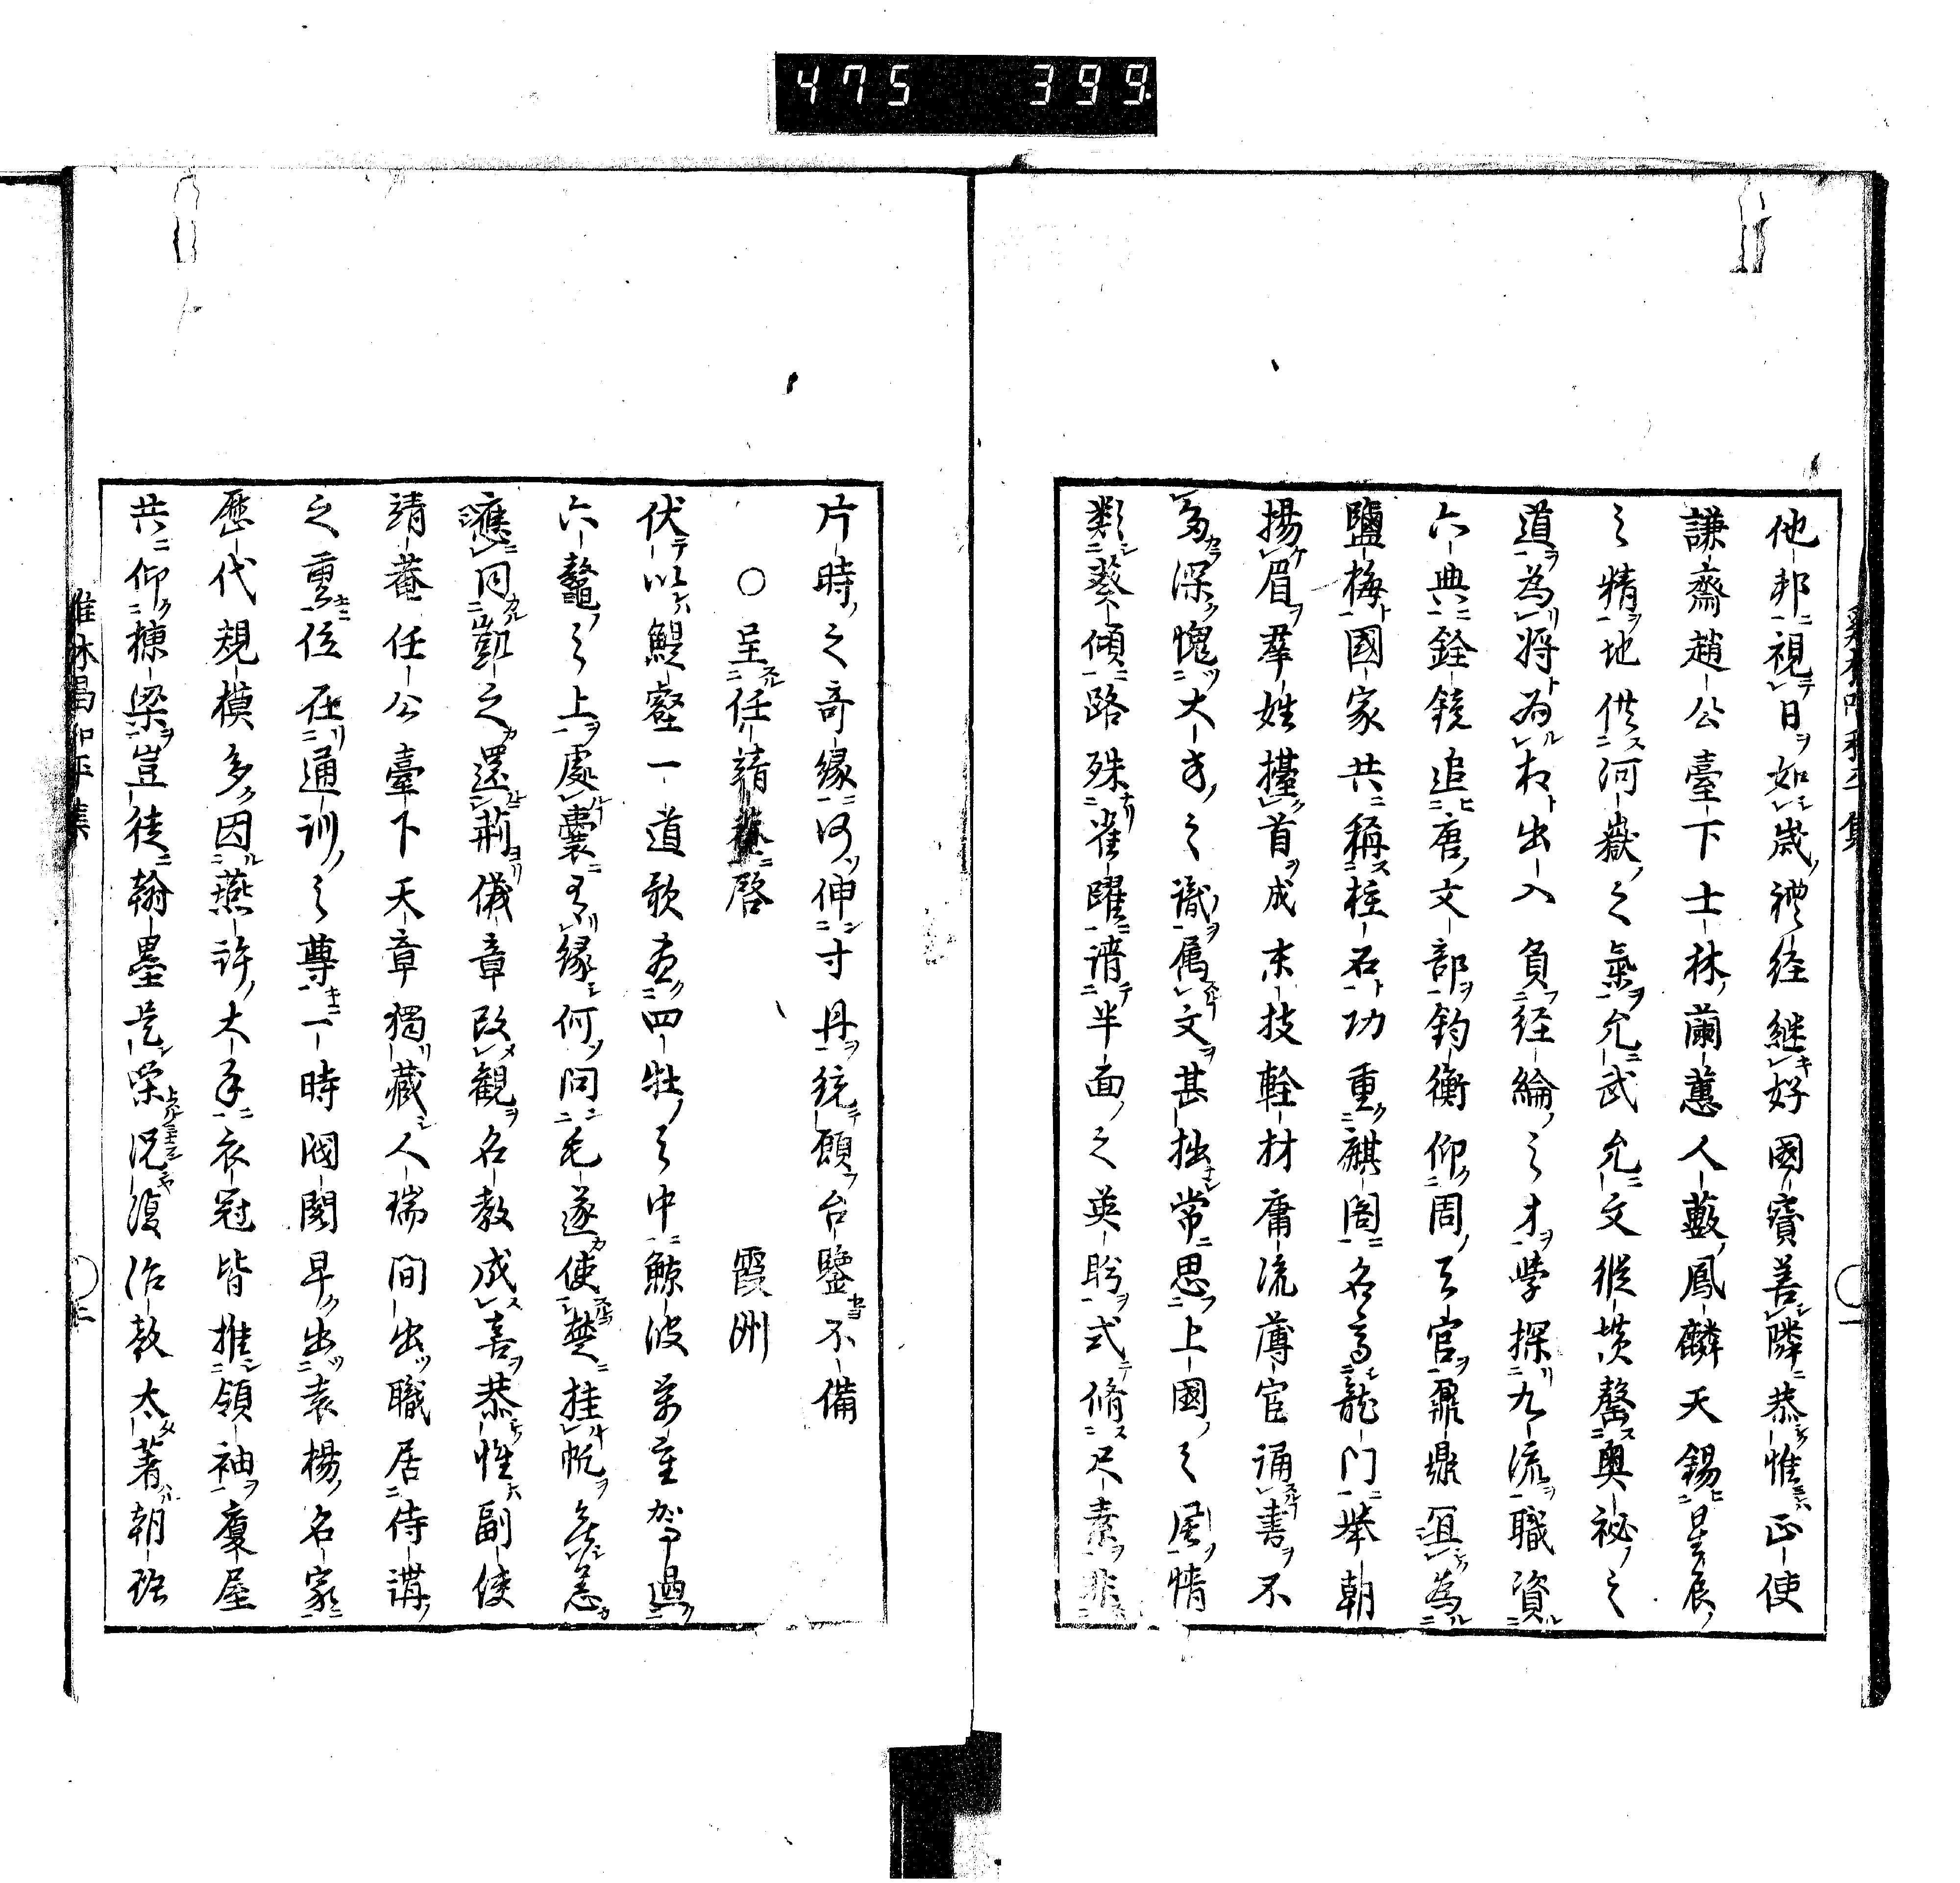 475 399
他邦視日如歲禮經繼好國寶善隣恭惟正使
謙齋趙公臺下士林蘭蕙人藪鳳麟天錫星辰
之精地供河嶽之氣允武允文縱橫馨奧祕之
道為將為相出入負経綸之才學探九流職資
六典銓鏡追唐文部鈞衡仰周天官鼐鼎宜為
鹽梅國家共稱柱石功重麒閣名高龍門舉朝
揚眉羣姓擡首成末技輇材庸流薄宦誦書不
多深愧大方之識属文甚拙常思上國之風情
類葵傾路殊雀躍請半面之英盼式脩尺素非
片時之奇縁何伸寸丹統願台鑒不備
○呈任靖菴啓 霞洲
伏以鯷壑一道歌壺四牡之中鯨波萬重駕過
六鼇之上處囊有縁何問毛遂使楚挂帆無恙
應同凱之還荊儀章改観名教成喜恭惟副使
靖菴任公臺下天章獨藏人瑞間出職居侍講
之重位在通訓之尊一時閥閱早出袁楊名家
歷代規模多因燕許大手衣冠皆推領袖廈屋
共仰棟梁豈徒翰墨是榮況復治教太著朝端